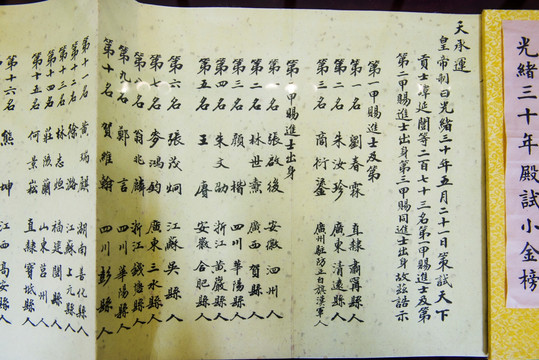 光緒三十年殿試小金榜
天承運
皇帝制曰光緒三十年五月二十一日策試天下
貢士譚延闓等二百七十三名第一甲賜進士及第
第二甲賜進士出身第三甲賜同進士出身故茲誥示
第一甲賜進士及第
第一名 劉春霖 直隸肅寧縣人
第二名 朱汝珍 廣東清遠縣人
第三名 商衍鎏 廣州駐防正白旗漢軍人
第二甲賜進士出身
第一名 張啟後 安徽泗州人
第二名 林世燾 廣西賀縣人
第三名 顏楷 四川華陽縣人
第四名 朱文劭 浙江黃巖縣人
第五名 王賡 安徽合肥縣人
第六名 張茂炯 江蘇吳縣人
第七名 麥鴻鈞 廣東三水縣人
第八名 翁兆麟 浙江錢塘縣人
第九名 鄭言 四川華陽縣人
第十名 賀維翰 四川彭縣人
第十一名 黃瑞麒 湖南善化縣人
第十二名 徐潞 江蘇上元縣人
第十三名 林志烜 福建閩縣人
第十四名 莊陔蘭 山東莒州人
第十五名 何景崧 直隸寶坻縣人
第十六名 熊坤 江西高安縣人